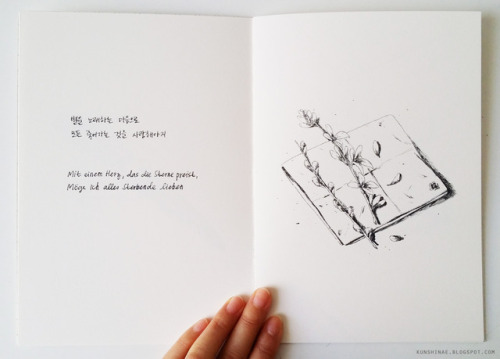 별을 노래하는 마음으로
모든 죽어가는 것을 사랑해야지
Mit einem Herz, das die Sterne preist,
Möge ich alles Sterbende lieben
KUNSHINAE.BLOGSPOT.COM